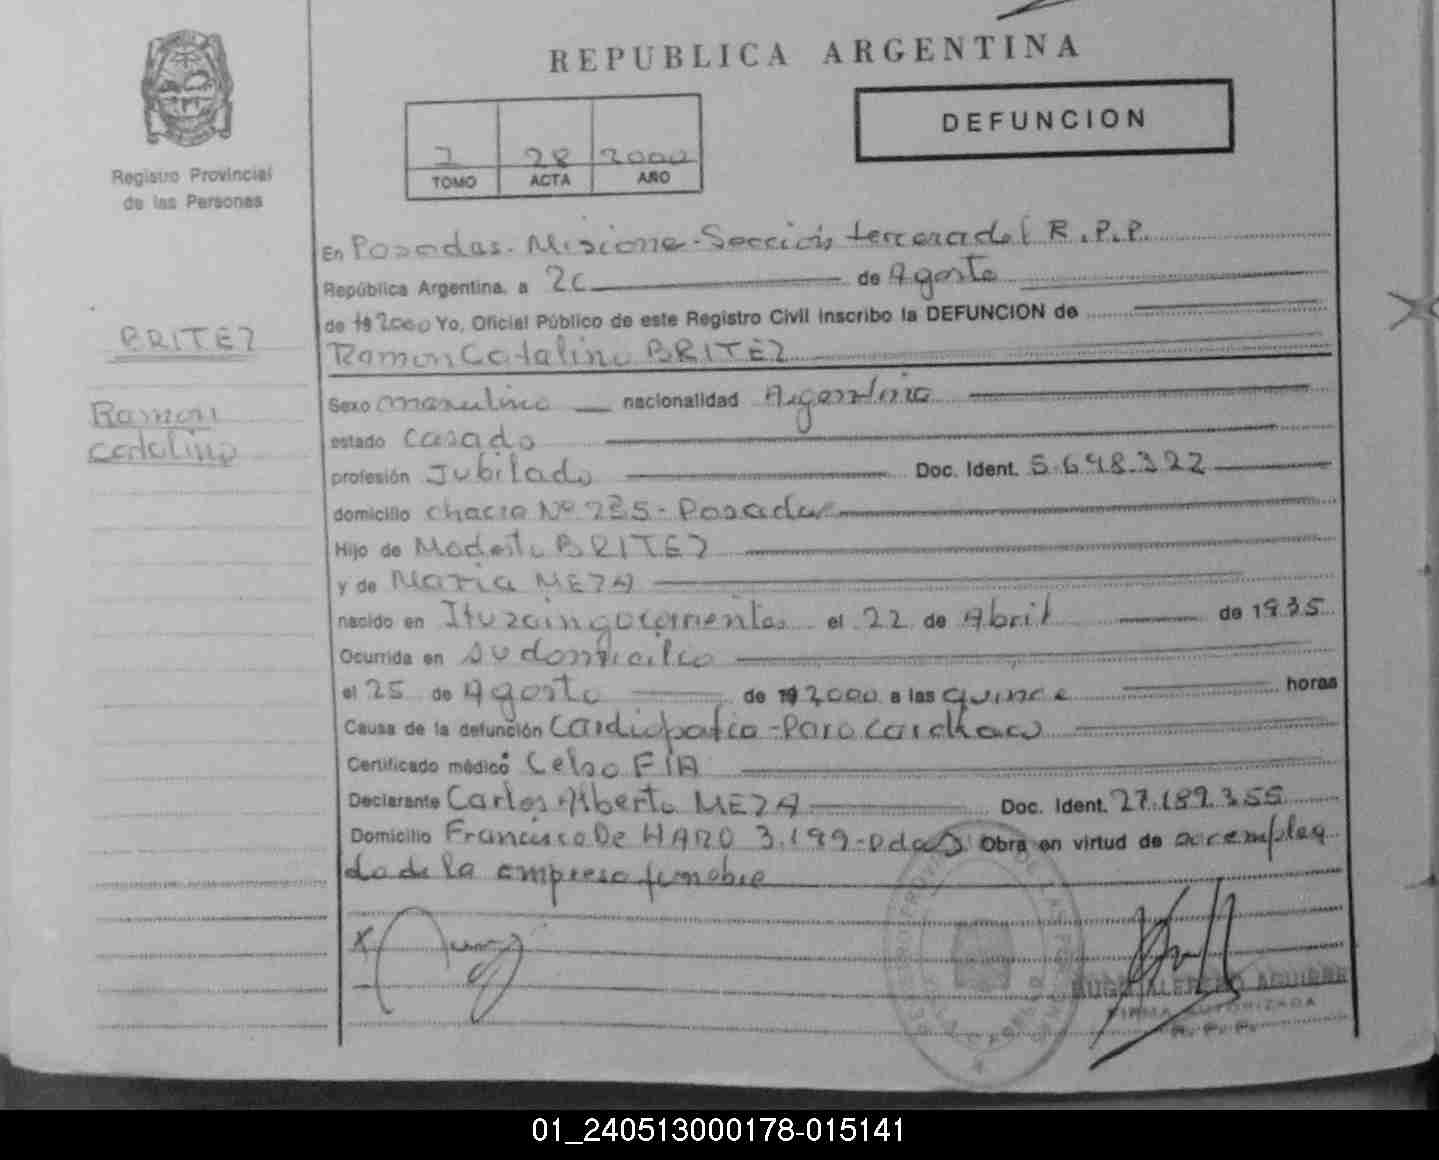 REPUBLICA ARGENTINA
DEFUNCION
Registro Provincial
de las Personas
2 28 2000
TOMO ACTA AÑO
En Posadas. Misione - Sección tercera del R.P.P.
República Argentina, a 26 de Agosto
de 19 2000 Yo, Oficial Público de este Registro Civil inscribo la DEFUNCION de
Ramon Catalino BRITEZ
BRITEZ
Ramon
Catalino
Sexo masculino nacionalidad Argentino
estado Casado
profesión Jubilado Doc. Ident. 5.648.322
domicilio chacra Nº 235 - Posadas
Hijo de Modesto BRITEZ
y de Maria MEZA
nacido en Ituzaingo corrientes el 22 de Abril de 1935
Ocurrida en su domicilio
el 25 de Agosto de 19 2000 a las quince horas
Causa de la defunción Cardiopatia - Paro Cardiaco
Certificado médico Celso FIA
Declarante Carlos Alberto MEZA Doc. Ident. 27.189.355
Domicilio Francisco De HARO 3.199 - Pdas Obra en virtud de ser emplea
do de la empresa funebre
X
AGUIRRE
FIRMA AUTORIZADA
R. P. P.
01_240513000178-015141